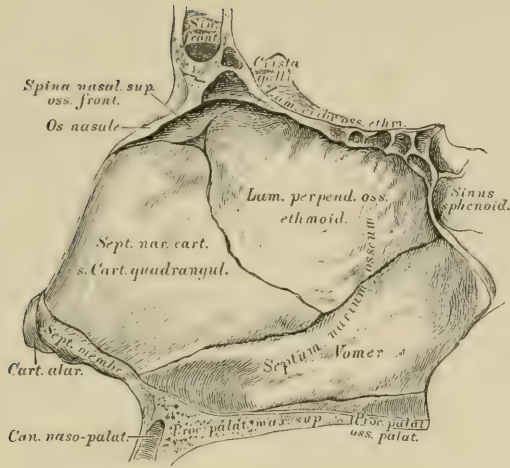 Sin.
front.
Crista
galli
Spina nasal. sup.
oss. front.
Lam. cribr. oss. ethm.
Os nasale
Lam. perpend. oss.
ethmoid.
Sinus
sphenoid.
Sept. nar. cart.
s. Cart. quadrangul.
Septum narium osseum
Vomer
Sept. membr.
Cart. alar.
Can. naso-palat.
Proc. palat. max. sup.
Proc. palat.
oss. palat.